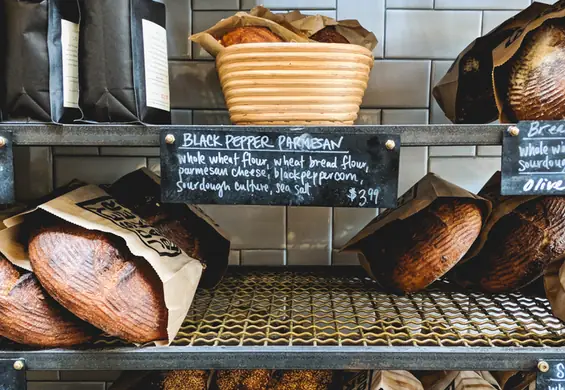 BLACK PEPPER PARMESAN
whole wheat flour, wheat bread flour,
parmesan cheese, black peppercorn,
sourdough culture, sea salt
$3.99
Brea
whole w
sourdou
Olive